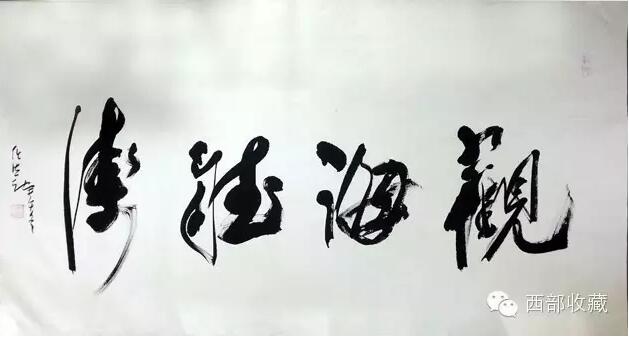 觀海聽濤
西部收藏